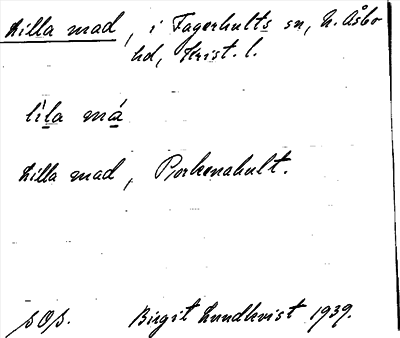 Lilla mad, i Fagerhults sn, N. Åsbo
hd, Krist. l.
líla má
Lilla mad, Porkenahult.
sOs. Birgit Lundkvist 1939.